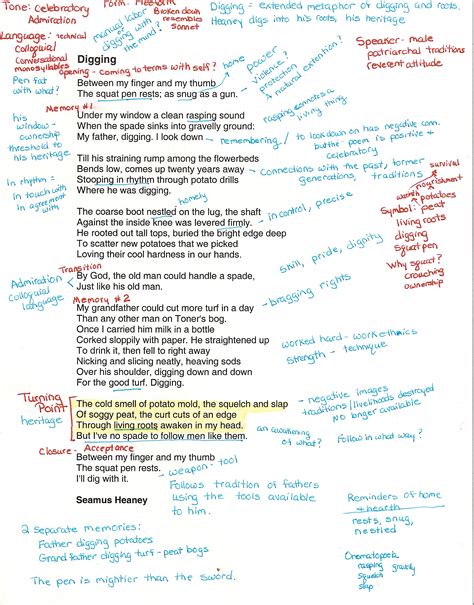 Tone: Celebratory
Admiration
Form:
Broken down
resembles
Sonnet
Digging = extended metaphor of digging and roots.
Heaney digs into his roots, his heritage
Language: technical
Colloquial
Conversational
monosyllables
manual labor
or
digging with
the mind?
Speaker - male
patriarchal traditions
reverent attitude
Digging
home
power
violence?
protection
A natural extention?
opening - coming to terms with self?
Pen fat
with what?
Between my finger and my thumb
The squat pen rests; as snug as a gun.
Memory #1
rasping connotes a
living thing
Under my window a clean rasping sound
When the spade sinks into gravelly ground:
My father, digging. I look down
remembering / to look down on has negative conn.
but the poem is positive +
celebratory
his
window -
ownership
threshold to
his heritage
Till his straining rump among the flowerbeds
Bends low, comes up twenty years away
Stooping in rhythm through potato drills
Where he was digging.
Connections with the past, former
generations, traditions
survival
nourishment
In rhythm =
in touch with
in agreement
with
homely
The coarse boot nestled on the lug, the shaft
Against the inside knee was levered firmly.
He rooted out tall tops, buried the bright edge deep
To scatter new potatoes that we picked
Loving their cool hardness in our hands.
in control, precise
skill, pride, dignity
warmth
potatoes
Symbol: peat
living roots
digging
squat pen
Why squat?
crouching
ownership
Transition
Admiration
Colloquial
language
By God, the old man could handle a spade,
Just like his old man.
bragging rights
Memory #2
My grandfather could cut more turf in a day
Than any other man on Toner's bog.
Once I carried him milk in a bottle
Corked sloppily with paper. He straightened up
To drink it, then fell to right away
Nicking and slicing neatly, heaving sods
Over his shoulder, digging down and down
For the good turf. Digging.
worked hard - work ethnics
strength - technique
Turning
Point
heritage
The cold smell of potato mold, the squelch and slap
Of soggy peat, the curt cuts of an edge
Through living roots awaken in my head.
But I've no spade to follow men like them.
negative images
traditions/livelihoods destroyed
No longer available
an awakening
of what?
Follow in what way?
Closure - Acceptance
Between my finger and my thumb
The squat pen rests.
I'll dig with it.
weapon - tool
Follows tradition of fathers
using the tools available
to him.
Seamus Heaney
Reminders of home
+ hearth
nests, snug,
nestled
2 separate memories:
Father digging potatoes
Grand father digging turf - peat bogs
The pen is mightier than the sword.
Onomatopoeia
rasping gravelly
squelch
slap